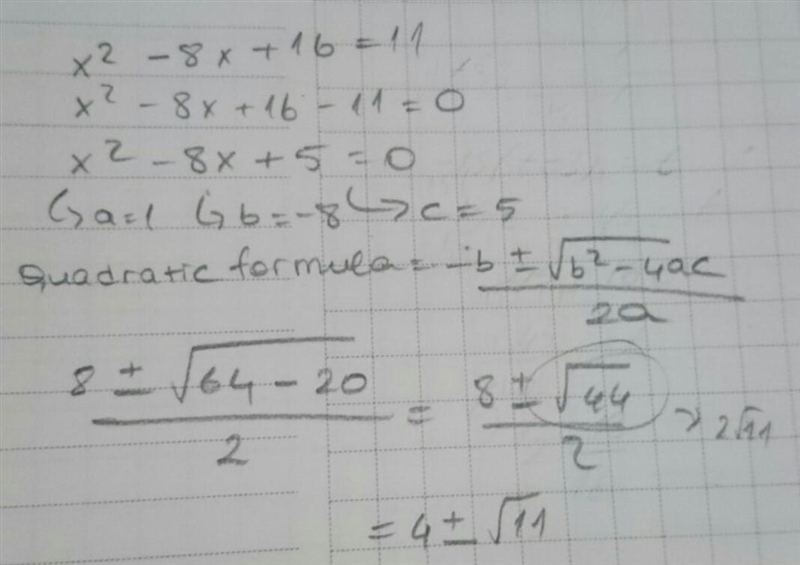 x² - 8x + 16 = 11
x² - 8x + 16 - 11 = 0
x² - 8x + 5 = 0
↳ a = 1 ↳ b = -8 ↳ c = 5
Quadratic formula = -b ± √(b² - 4ac) / 2a
8 ± √(64 - 20) / 2 = 8 ± √44 / 2 → 2√11
= 4 ± √11